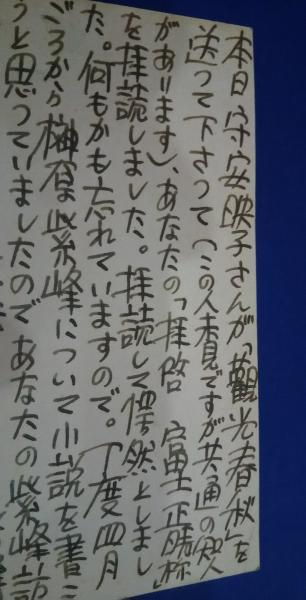 本日 守安映子さんが「観光春秋」を
送って下さって(この人未見ですが共通の知人
があります)、あなたの「拝啓 富士正晴様」
を拝読しました。拝読して愕然としまし
た。何もかも忘れていますので。丁度四月
ごろから榊原紫峰について小説を書こ
うと思っていましたのであなたの紫峰訪